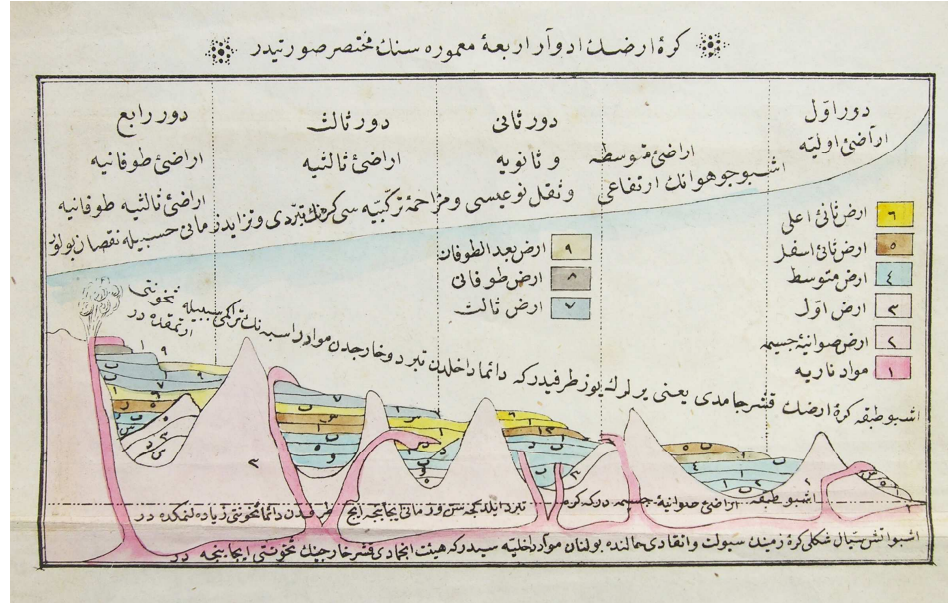 كرۀ ارضك ادوار اربعۀ معموره سنك مختصر صورتيدر
دور اوّل
اراضئ اوليّه
دور ثانى
و ثانويه
اراضئ متوسطه
دور ثالث
اراضئ ثالثيه
دور رابع
اراضئ طوفانيه
اراضئ ثالثيه طوفانيه
اشبو جو هوانك ارتفاعى
و ثقل نوعيسى و مزاحمۀ تركبيّه سى كره نك تبرّدى و تزايد زمانى حسبيله نقصان بولور
٦ ارض ثانئ اعلى
٥ ارض ثانئ اسفل
٤ ارض متوسط
٣ ارض اول
٢ ارض صوانيۀ جسيمه
١ مواد ناريه
٩ ارض بعد الطوفان
٨ ارض طوفانى
٧ ارض ثالث
اشبو طبقه كرۀ ارضك قشر جامدى يعنى يرلرك يوز طرفيدركه دائما داخلدن تبرد و خارجدن مواد راسبه نك تراكمى سببيله ثخونتى ارتمقده در
اشبو طبقه اراضئ صوانيۀ جسيمه دركه كره تبرد ايلدكجه زمانى ايجابنجه دائما ثخونتى زياده لنمكده در
اشبو آتش سيال شكلى كرۀ زمينك سيولت و اتقادى حالنده بولنان مواد داخليه سيدركه هيئت انجمادى قشر خارجينك ثخونتى ايجابنجه در